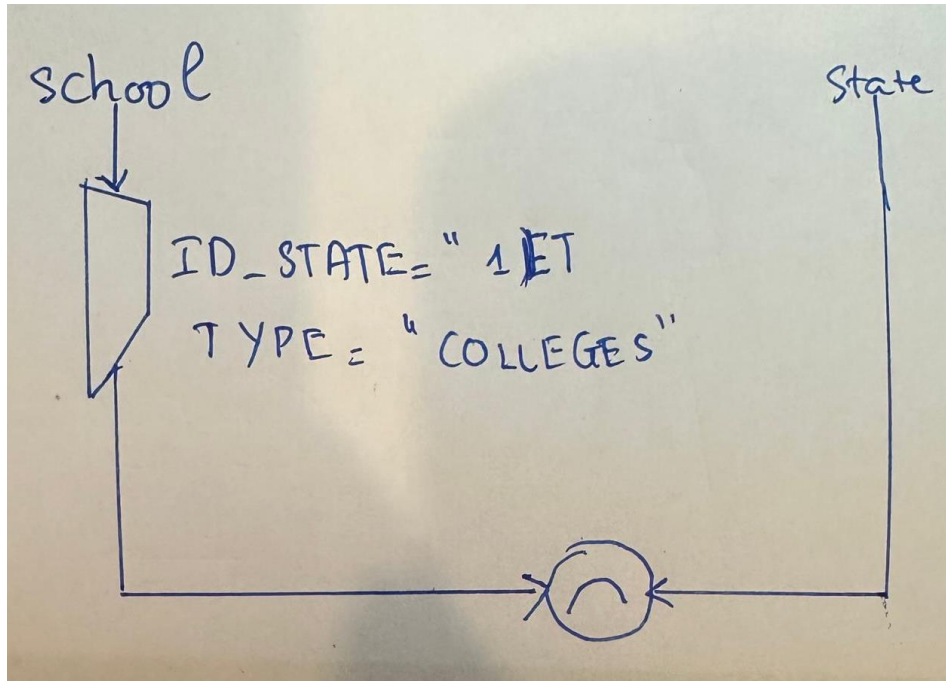 school
State
ID_STATE="1 ET
TYPE="COLLEGES"